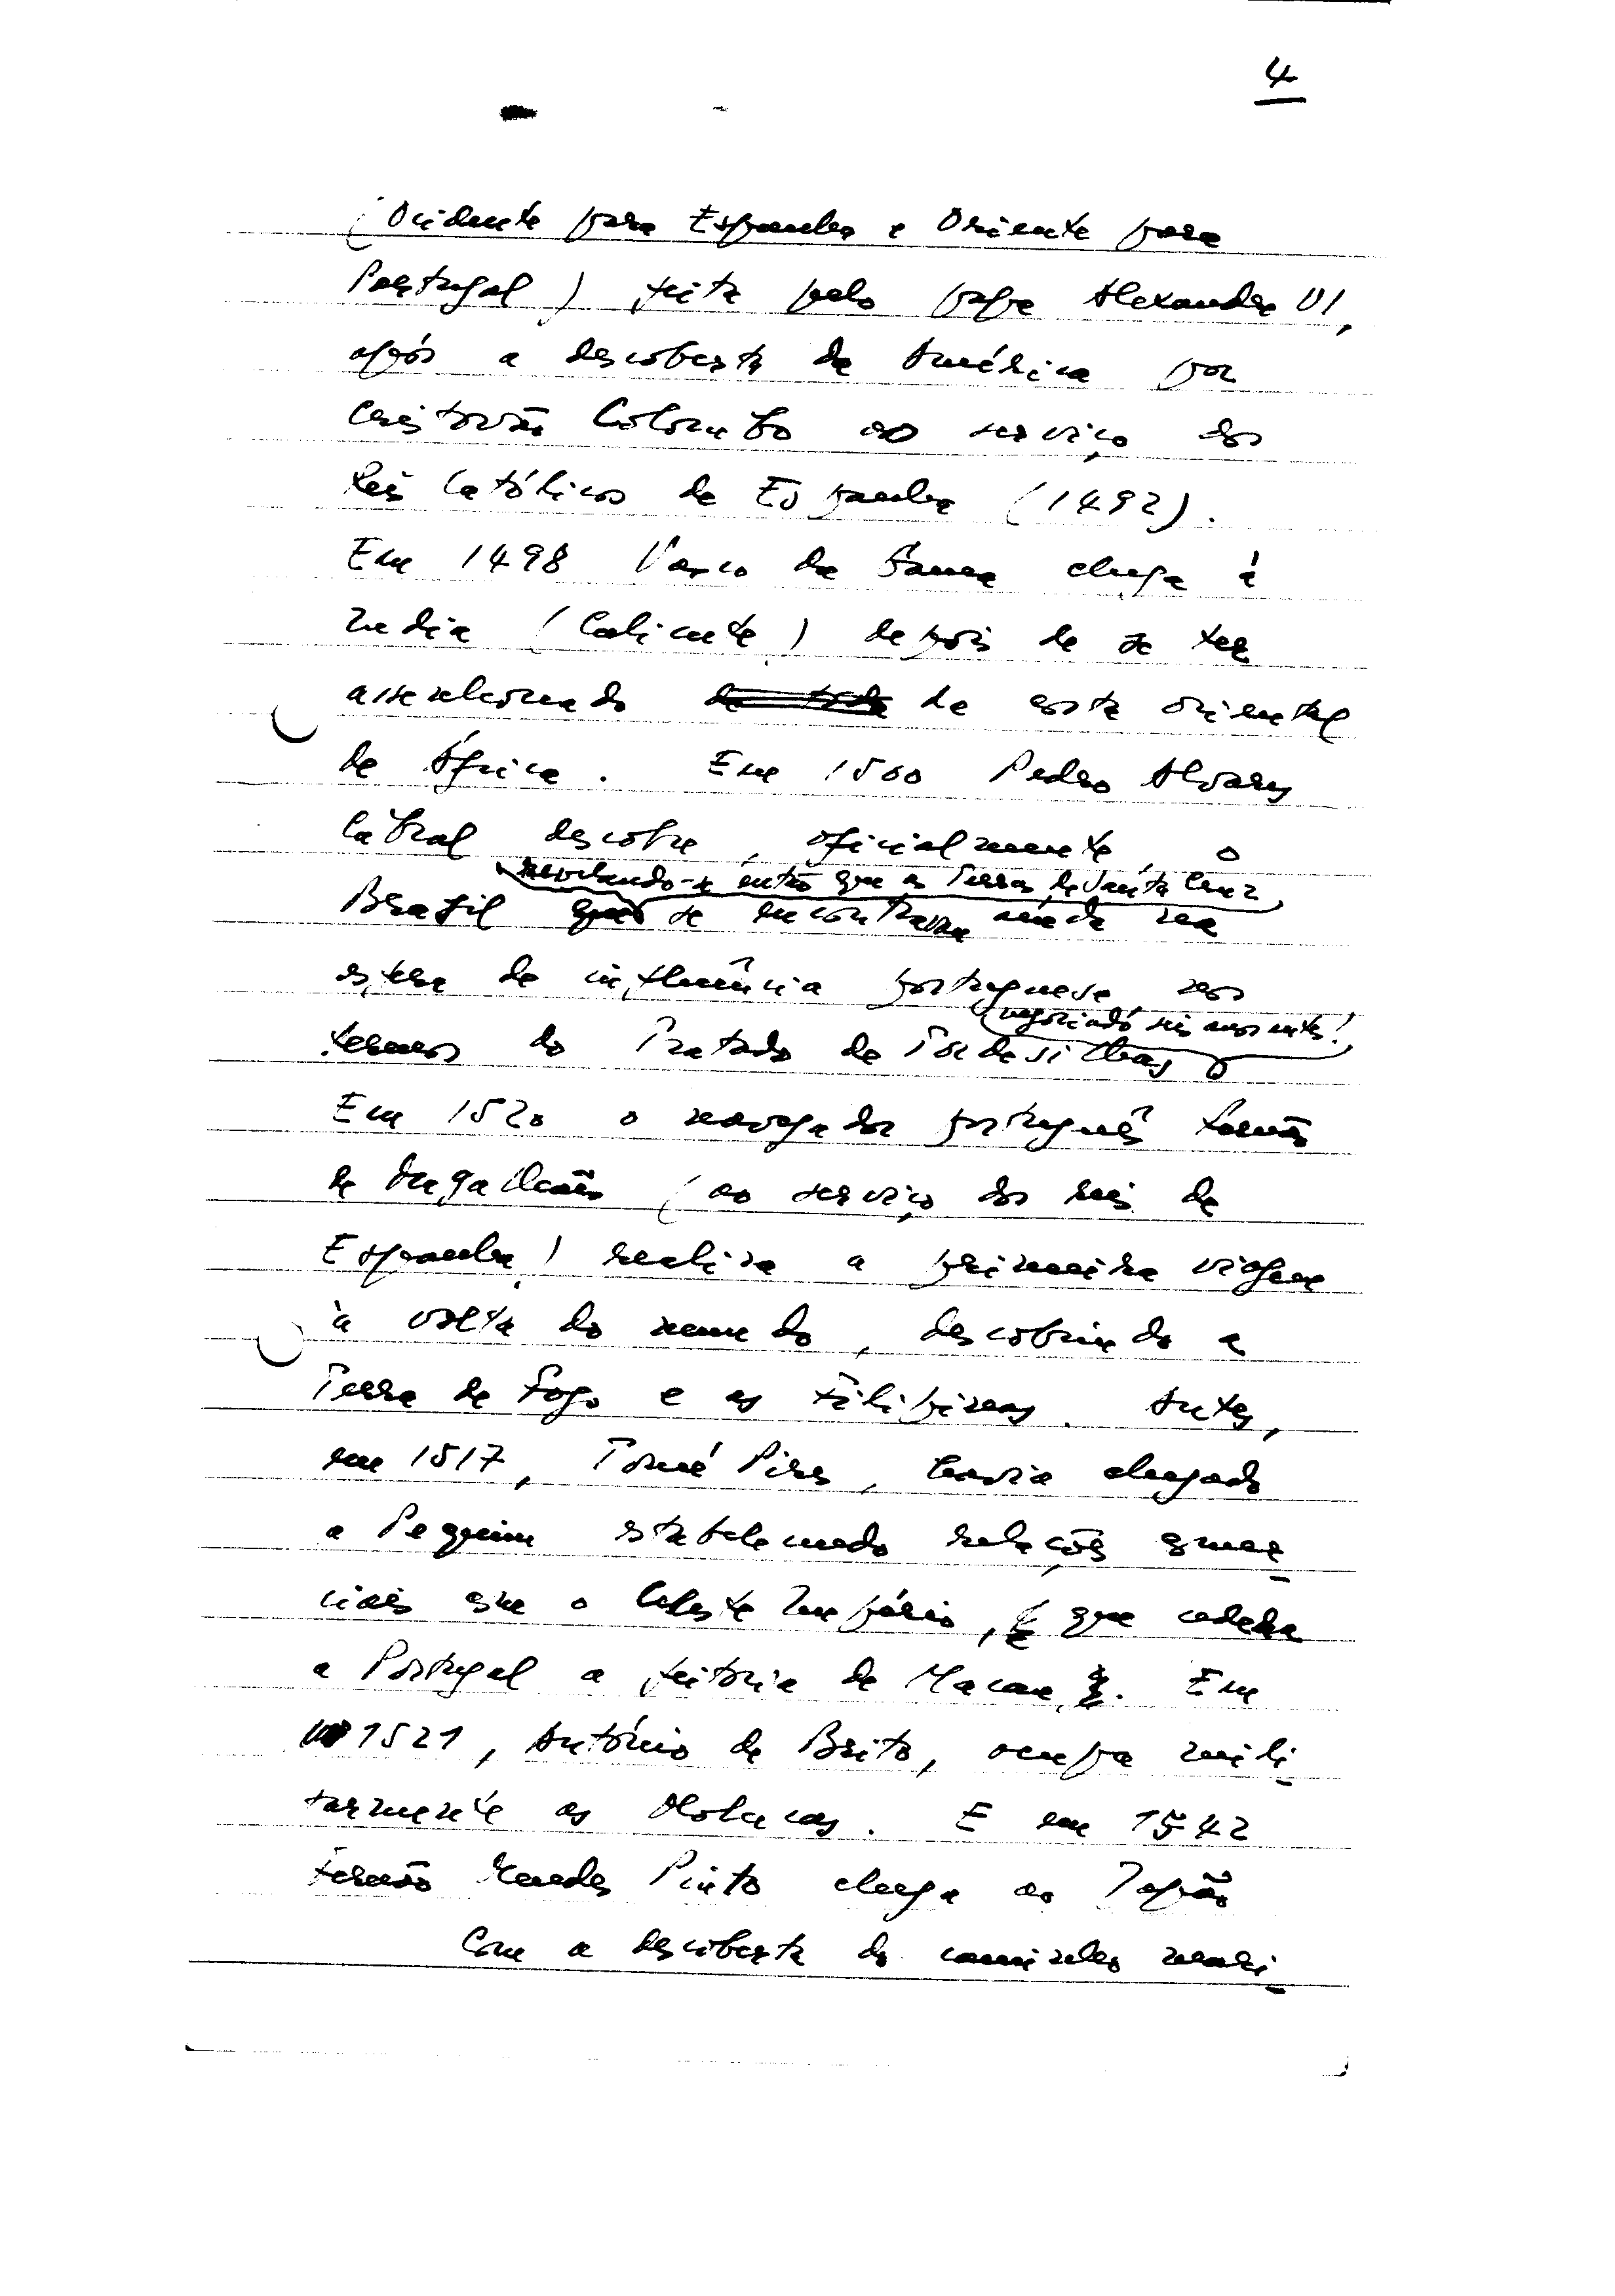 4
(Ocidente para Espanha e Oriente para
Portugal) feita pelo papa Alexandre VI,
após a descoberta da América por
Cristovão Colombo ao serviço dos
Reis Católicos de Espanha (1492).
Em 1498 Vasco da Gama chega à
India (Calicute) depois de se ter
assenhoreado da toda da costa oriental
de África. Em 1500 Pedro Alvares
Cabral descobre, oficialmente, o
revelando-se então que as Terras de Santa Cruz
Brasil que se encontrava ainda na
esfera de influência portuguesa, nos
negociado seis anos antes!
termos do Tratado de Tordesilhas
Em 1520 o navegador português Fernão
de Magalhães (ao serviço dos reis de
Espanha) realiza a primeira viagem
à volta do mundo, descobrindo a
Terra de Fogo e as Filipinas. Antes,
em 1517, Tomé Pires, havia chegado
a Pequim estabelecendo relações comer-
ciais com o Celeste Império, que cedera
a Portugal a feitoria de Macau. Em
1521, António de Brito, ocupa mili-
tarmente as Molucas. E em 1542
Fernão Mendes Pinto chega ao Japão
Com a descoberta do caminho maríti-